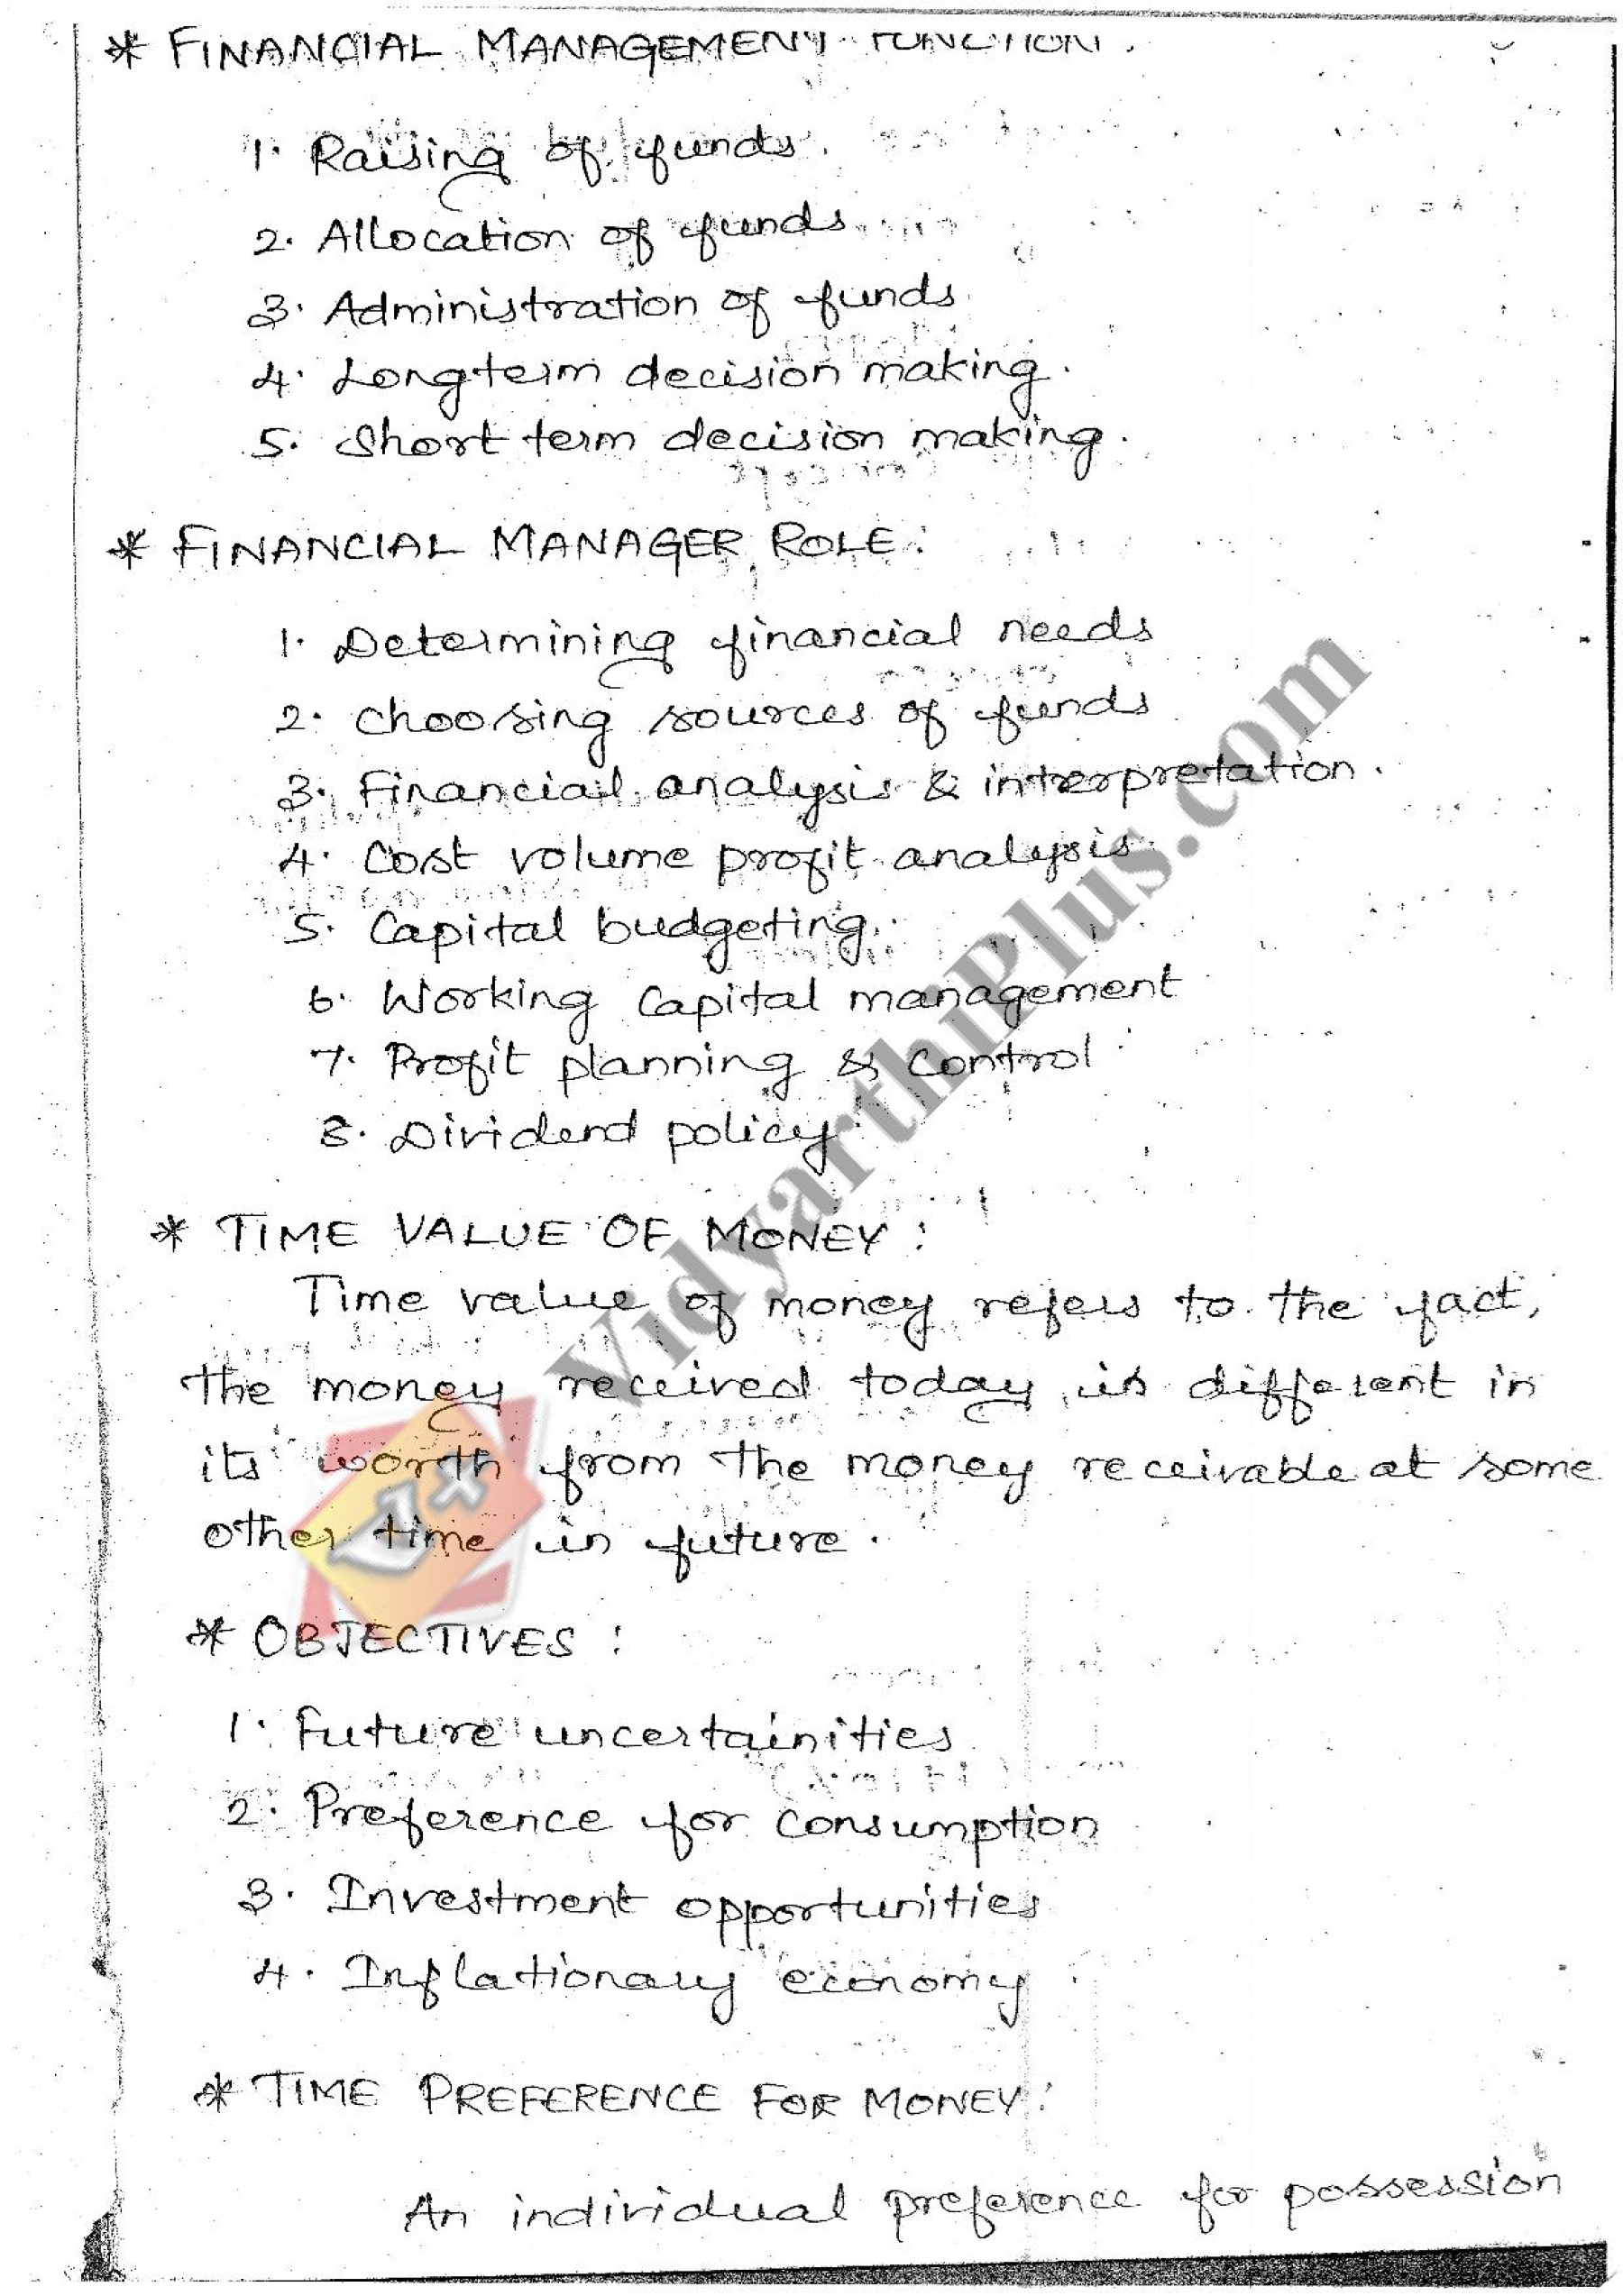 * FINANCIAL MANAGEMENT FUNCTION.
1. Raising of funds.
2. Allocation of funds
3. Administration of funds
4. Longterm decision making.
5. Short term decision making.
* FINANCIAL MANAGER ROLE:
1. Determining financial needs
2. Choosing sources of funds
3. Financial analysis & interpretation.
4. Cost volume profit analysis.
5. Capital budgeting.
6. Working Capital management
7. Profit planning & Control
8. Dividend policy
* TIME VALUE OF MONEY:
Time value of money refers to the fact,
the money received today is different in
its worth from the money receivable at some
other time in future.
* OBJECTIVES:
1. Future uncertainities
2. Preference for consumption
3. Investment opportunities
4. Inflationary economy
* TIME PREFERENCE FOR MONEY:
An individual preference for possession
VidyarthiPlus.com
V+